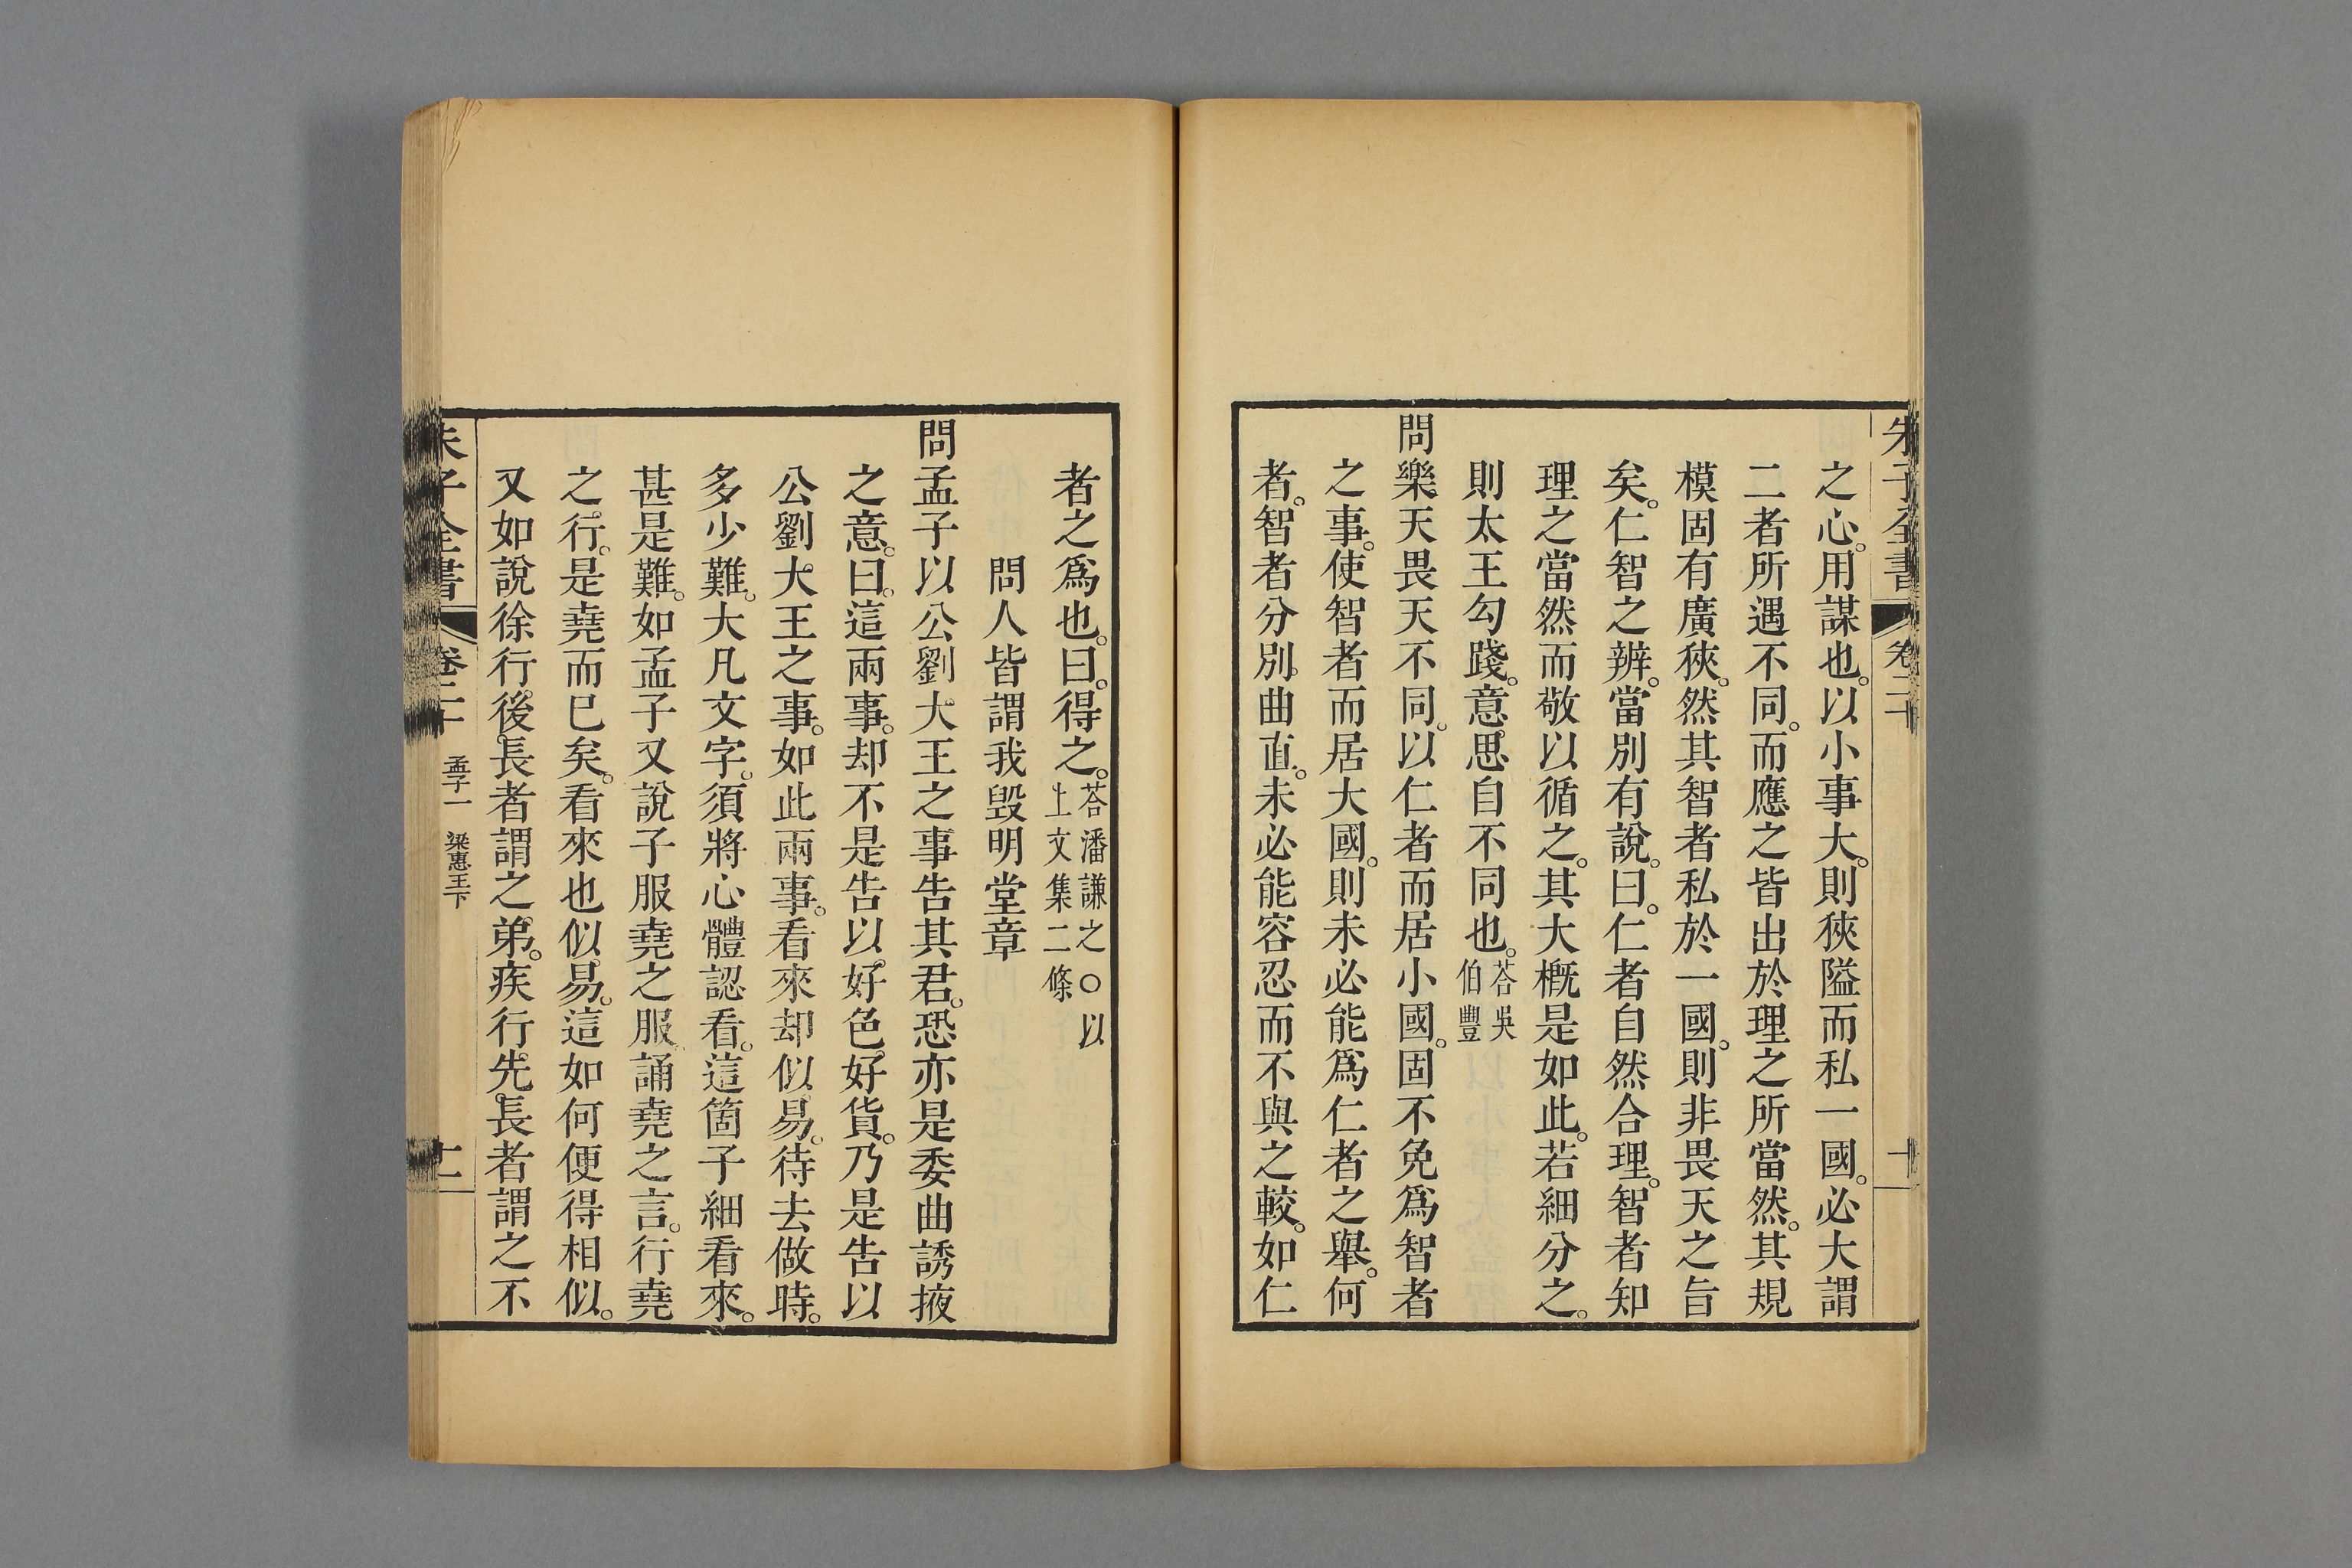 朱子全書 卷二十
之心。用謀也。以小事大。則狹隘而私一國。必大謂
二者所遇不同。而應之皆出於理之所當然。其規
模固有廣狹。然其智者私於一國。則非畏天之旨
矣。仁智之辨。當別有說。曰。仁者自然合理。智者知
理之當然而敬以循之。其大概是如此。若細分之。
則太王勾踐。意思自不同也。荅吳
伯豐
問樂天畏天不同。以仁者而居小國。固不免爲智者
之事。使智者而居大國。則未必能爲仁者之舉。何
者。智者分別曲直。未必能容忍而不與之較。如仁
者之爲也。曰。得之。荅潘謙之○以
上文集二條
問人皆謂我毀明堂章
問孟子以公劉大王之事告其君。恐亦是委曲誘掖
之意。曰。這兩事。却不是告以好色好貨。乃是告以
公劉大王之事。如此兩事。看來却似易。待去做時。
多少難。大凡文字。須將心體認看。這箇子細看來。
甚是難。如孟子又說子服堯之服。誦堯之言。行堯
之行。是堯而已矣。看來也似易。這如何便得相似。
又如說徐行後長者謂之弟。疾行先長者謂之不
朱子全書 卷二十 孟子一 梁惠王下